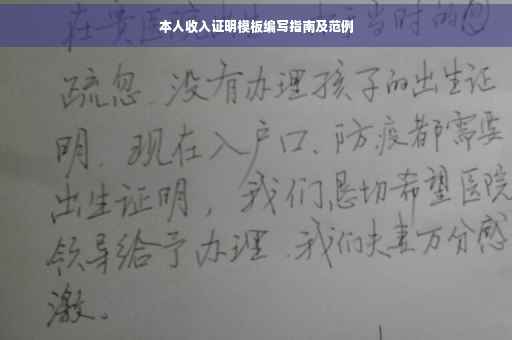 本人收入证明模板编写指南及范例
当时的
疏忽、没有办理孩子的出生证
明、现在入户口、防疫都需要
出生证明，我们恳切希望医院
领导给予办理、我们夫妻万分感
激。